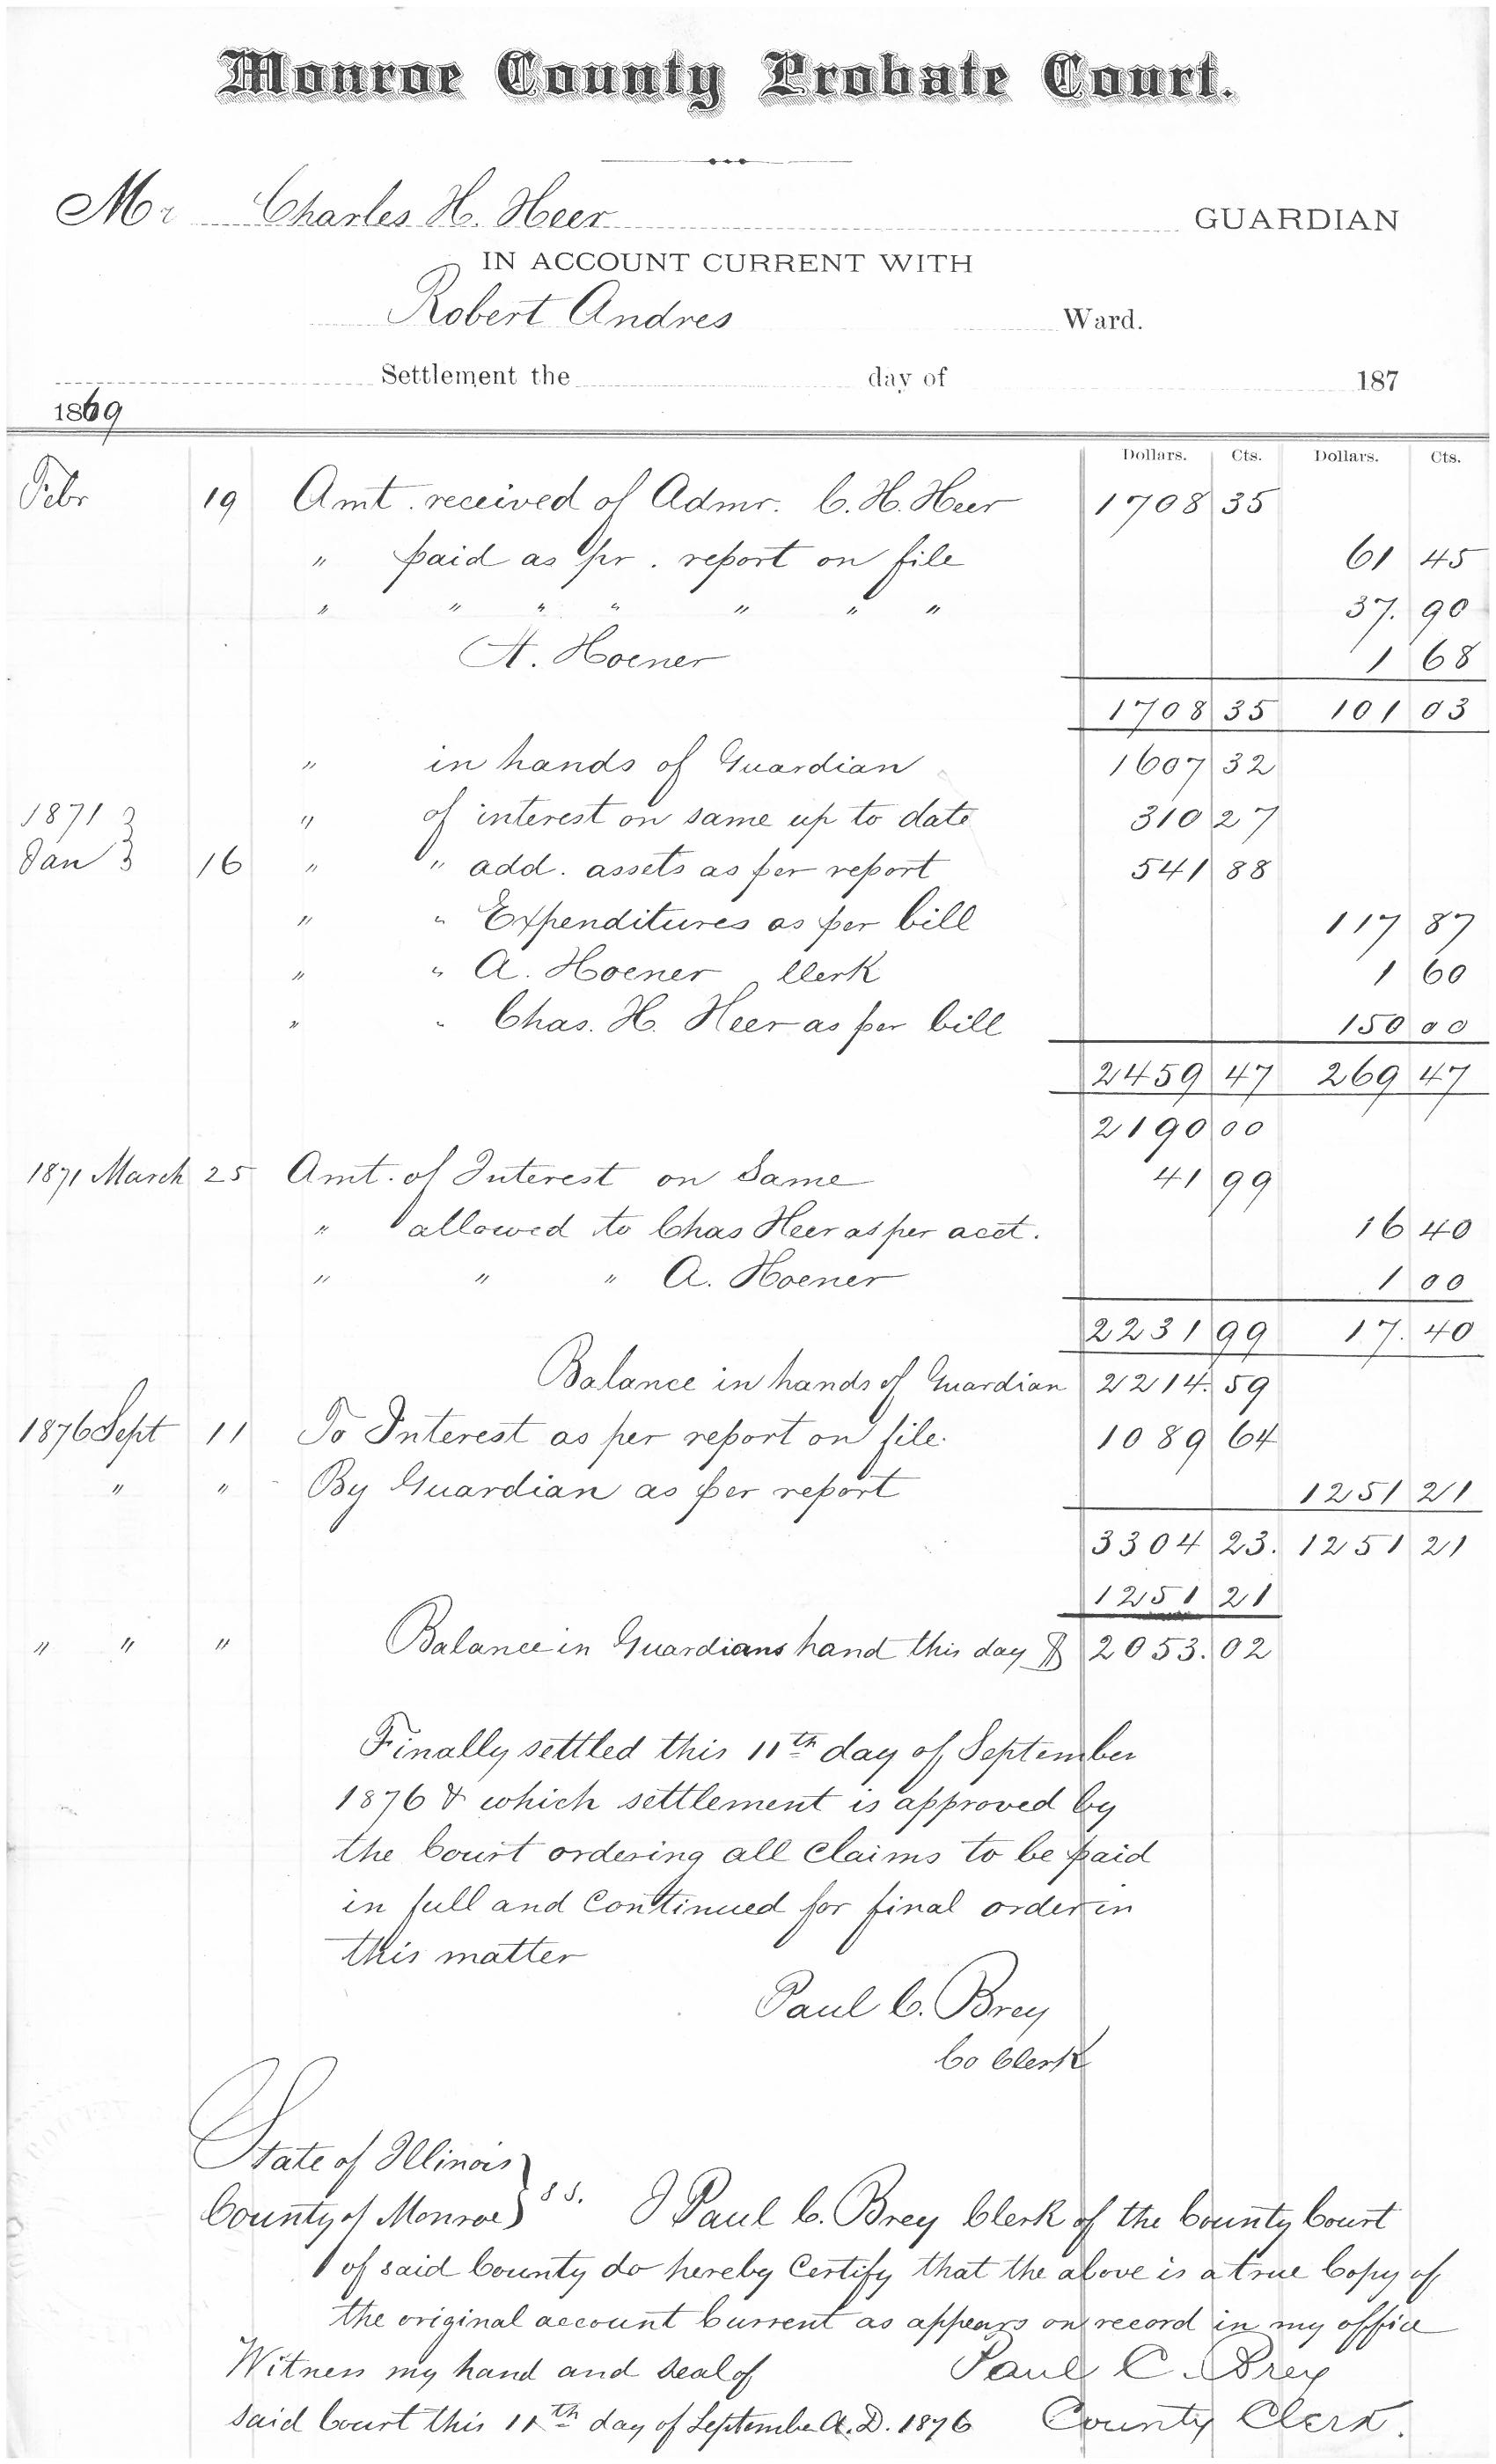 Monroe County Probate Court.
Mr Charles H. Heer GUARDIAN
IN ACCOUNT CURRENT WITH
Robert Andres Ward.
Settlement the day of 187
1869
Dollars. Cts. Dollars. Cts.
Febr 19 Amt. received of Admr. C. H. Heer 1708 35
" paid as pr. report on file 61 45
" " " " " " " 37. 90
A. Hoener 1 68
1708 35 101 03
" in hands of Guardian 1607 32
1871 } " of interest on same up to date 310 27
Jan } 16 " " add. assets as per report 541 88
" " Expenditures as per bill 117 87
" " A. Hoener Clerk 1 60
" " Chas. H. Heer as per bill 150 00
2459 47 269 47
2190 00
1871 March 25 Amt. of Interest on Same 41 99
" allowed to Chas Heer as per acct. 16 40
" " " A. Hoener 1 00
2231 99 17. 40
Balance in hands of Guardian 2214. 59
1876 Sept 11 To Interest as per report on file. 1089 64
" " By Guardian as per report 1251 21
3304 23. 1251 21
1251 21
" " " Balance in Guardians hand this day $ 2053. 02
Finally settled this 11th day of September
1876 & which settlement is approved by
the Court ordering all claims to be paid
in full and continued for final order in
this matter
Paul C. Brey
Co Clerk
State of Illinois }
County of Monroe } SS. I Paul C. Brey Clerk of the County Court
of said County do hereby Certify that the above is a true Copy of
the original account Current as appears on record in my office
Witness my hand and seal of Paul C. Brey
said Court this 11th day of September A.D. 1876 County Clerk.